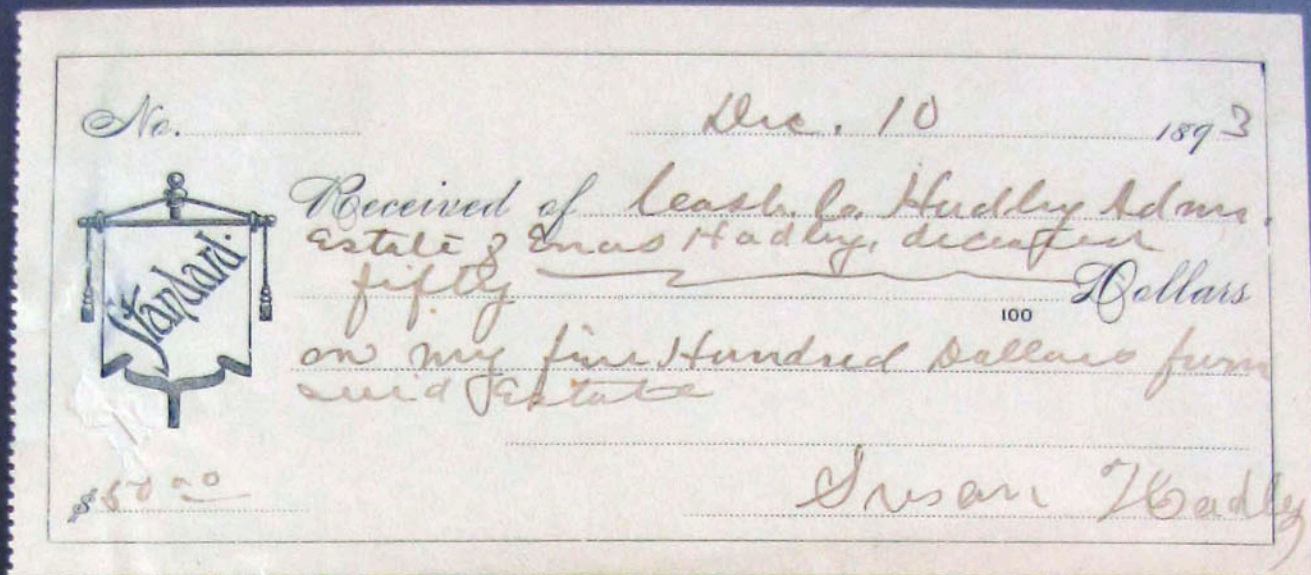 No. Dec. 10 1893
Standard.
Received of Hadley Admr.
Estate of Enos Hadley, deceased
fifty Dollars
100
on my five Hundred Dollars from
said Estate
$50 00
Susan Hadley